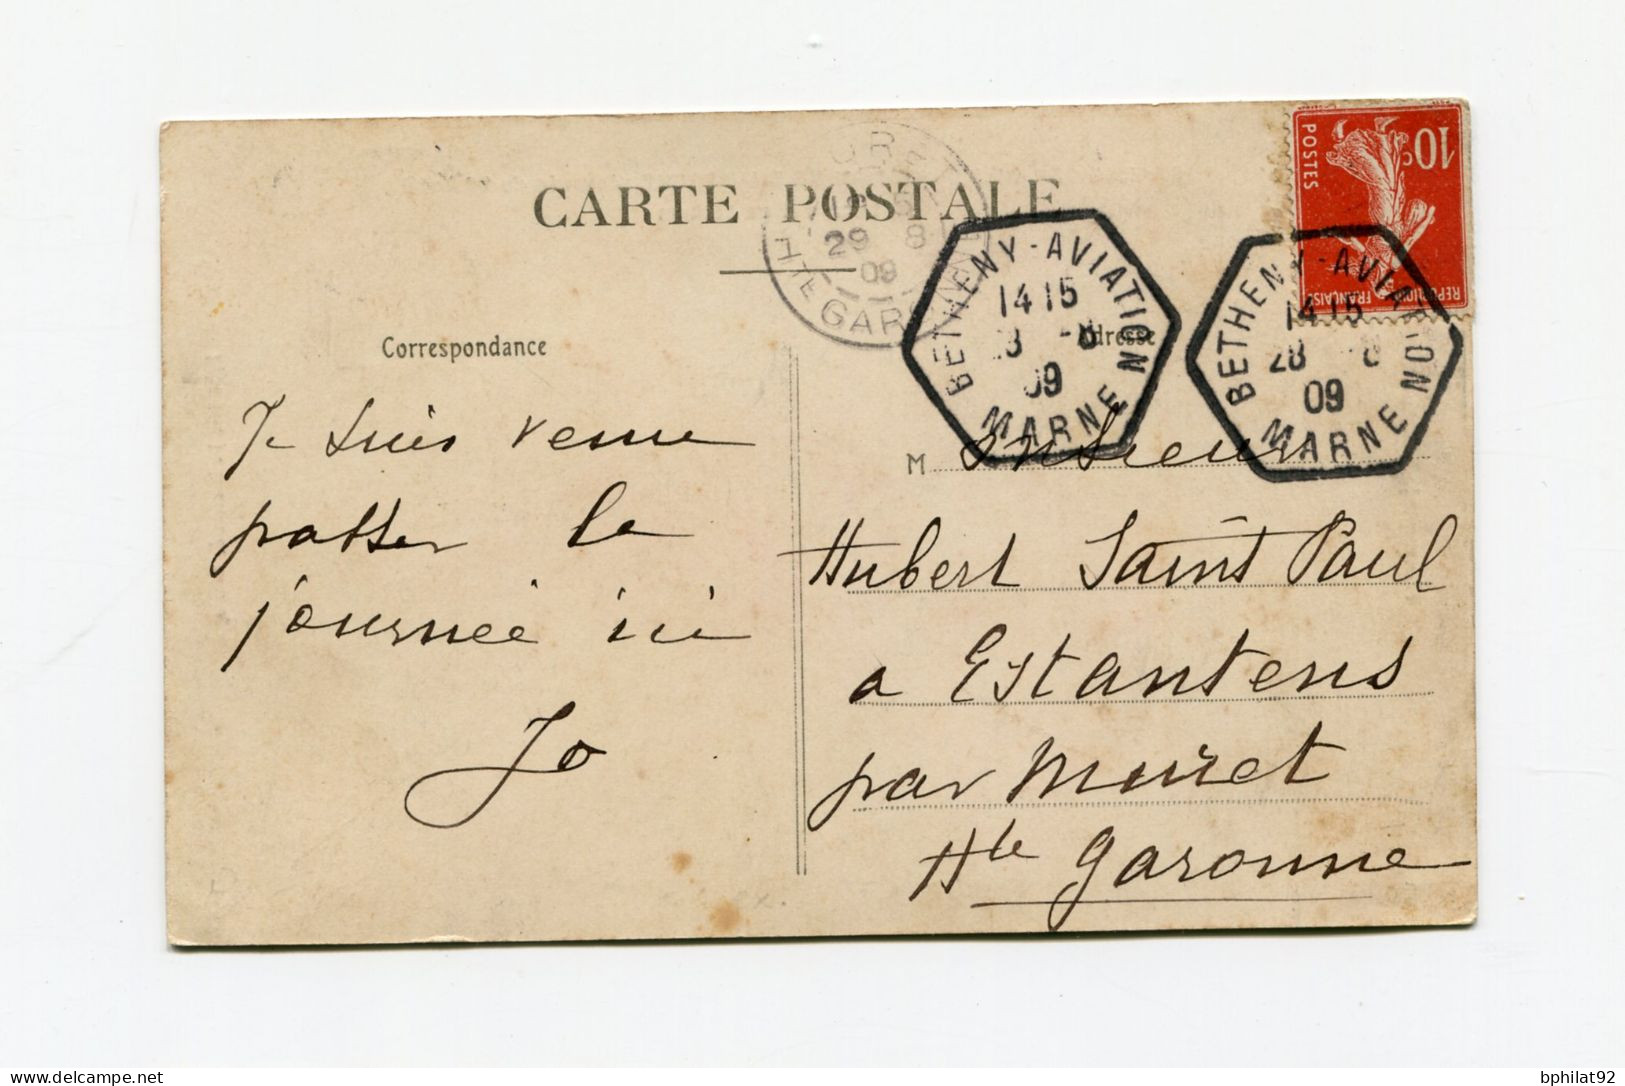 CARTE POSTALE
MURET
29 8
09
HTE GARONNE
BETHENY-AVIATION
14 15
28 8
09
MARNE
BETHENY-AVIATION
14 15
28 8
09
MARNE
10c
POSTES
REPUBLIQUE FRANÇAISE
Correspondance
Adresse
Je suis venu
passer la
journée ici
Jo
Monsieur
Hubert Saint Paul
a Estantens
par Muret
Hte Garonne
delcampe.net
bphilat92